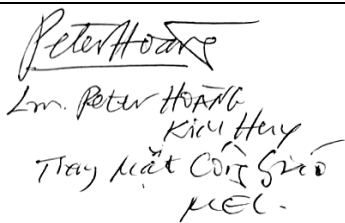 Peter Hoàng
Lm. Peter HOÀNG
Kim Huy
Thay Mặt Công Giáo
MEL.